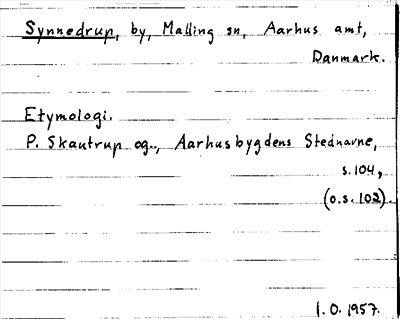 Synnedrup, by, Malling sn, Aarhus amt,
Danmark.
Etymologi.
P. Skautrup og., Aarhusbygdens Stednavne,
s. 104,
(o.s. 102).
I. O. 1957.